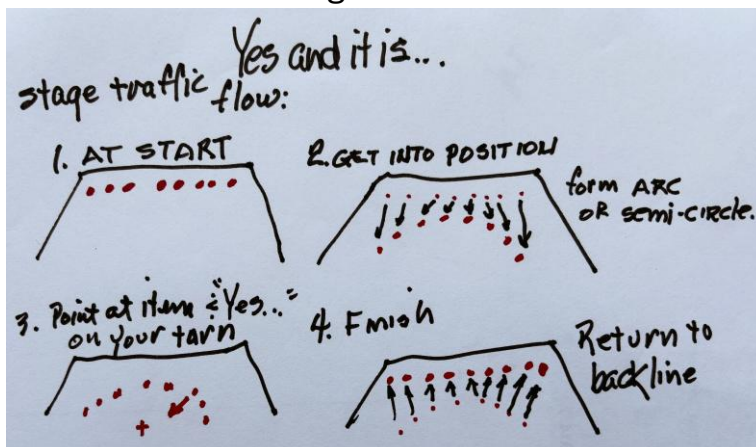 Yes and it is...
stage traffic flow:
1. AT START
2. GET INTO POSITION
form ARC
OR SEMI-CIRCLE.
3. Point at item & "Yes..."
on your turn
4. Finish
Return to
backline